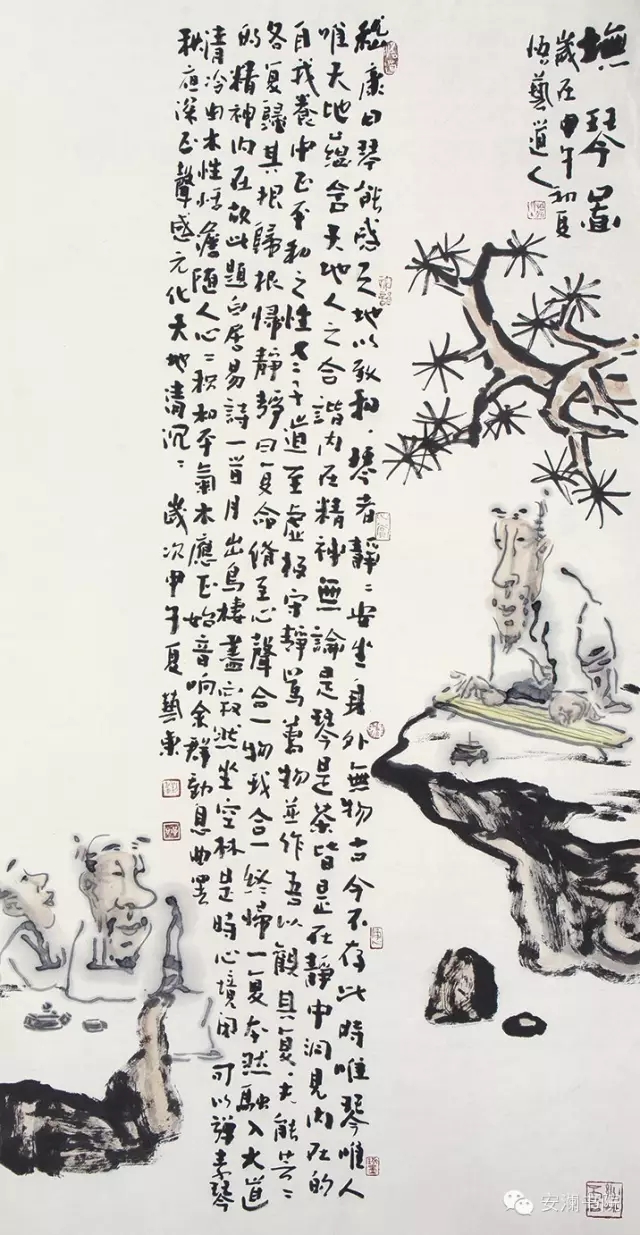 撫琴圖
歲在甲午初夏
悟藝道人
嵇康曰琴能感天地以致和、琴者靜〻安坐身外無物古今不存此時唯琴唯人
唯天地蕴含天地人之合諧内在精神無論是琴是茶皆是在靜中洞見内在的
自我養中正至和之性老子道至虛極守靜篤萬物並作吾以觀其复、夫能芸〻
各复歸其根歸根歸靜靜曰复命脩至心聲合一物我合一終歸一复本然融入大道
的精神内在故此題白居易詩一首月出鳥棲盡寂然坐空林是時心境閑可以彈素琴
清泠由木性恬澹隨人心〻积和平氣木應正始音响余群動息曲罢
秋夜深正聲感元化天地清沉〻歲次甲午夏
安澜书院